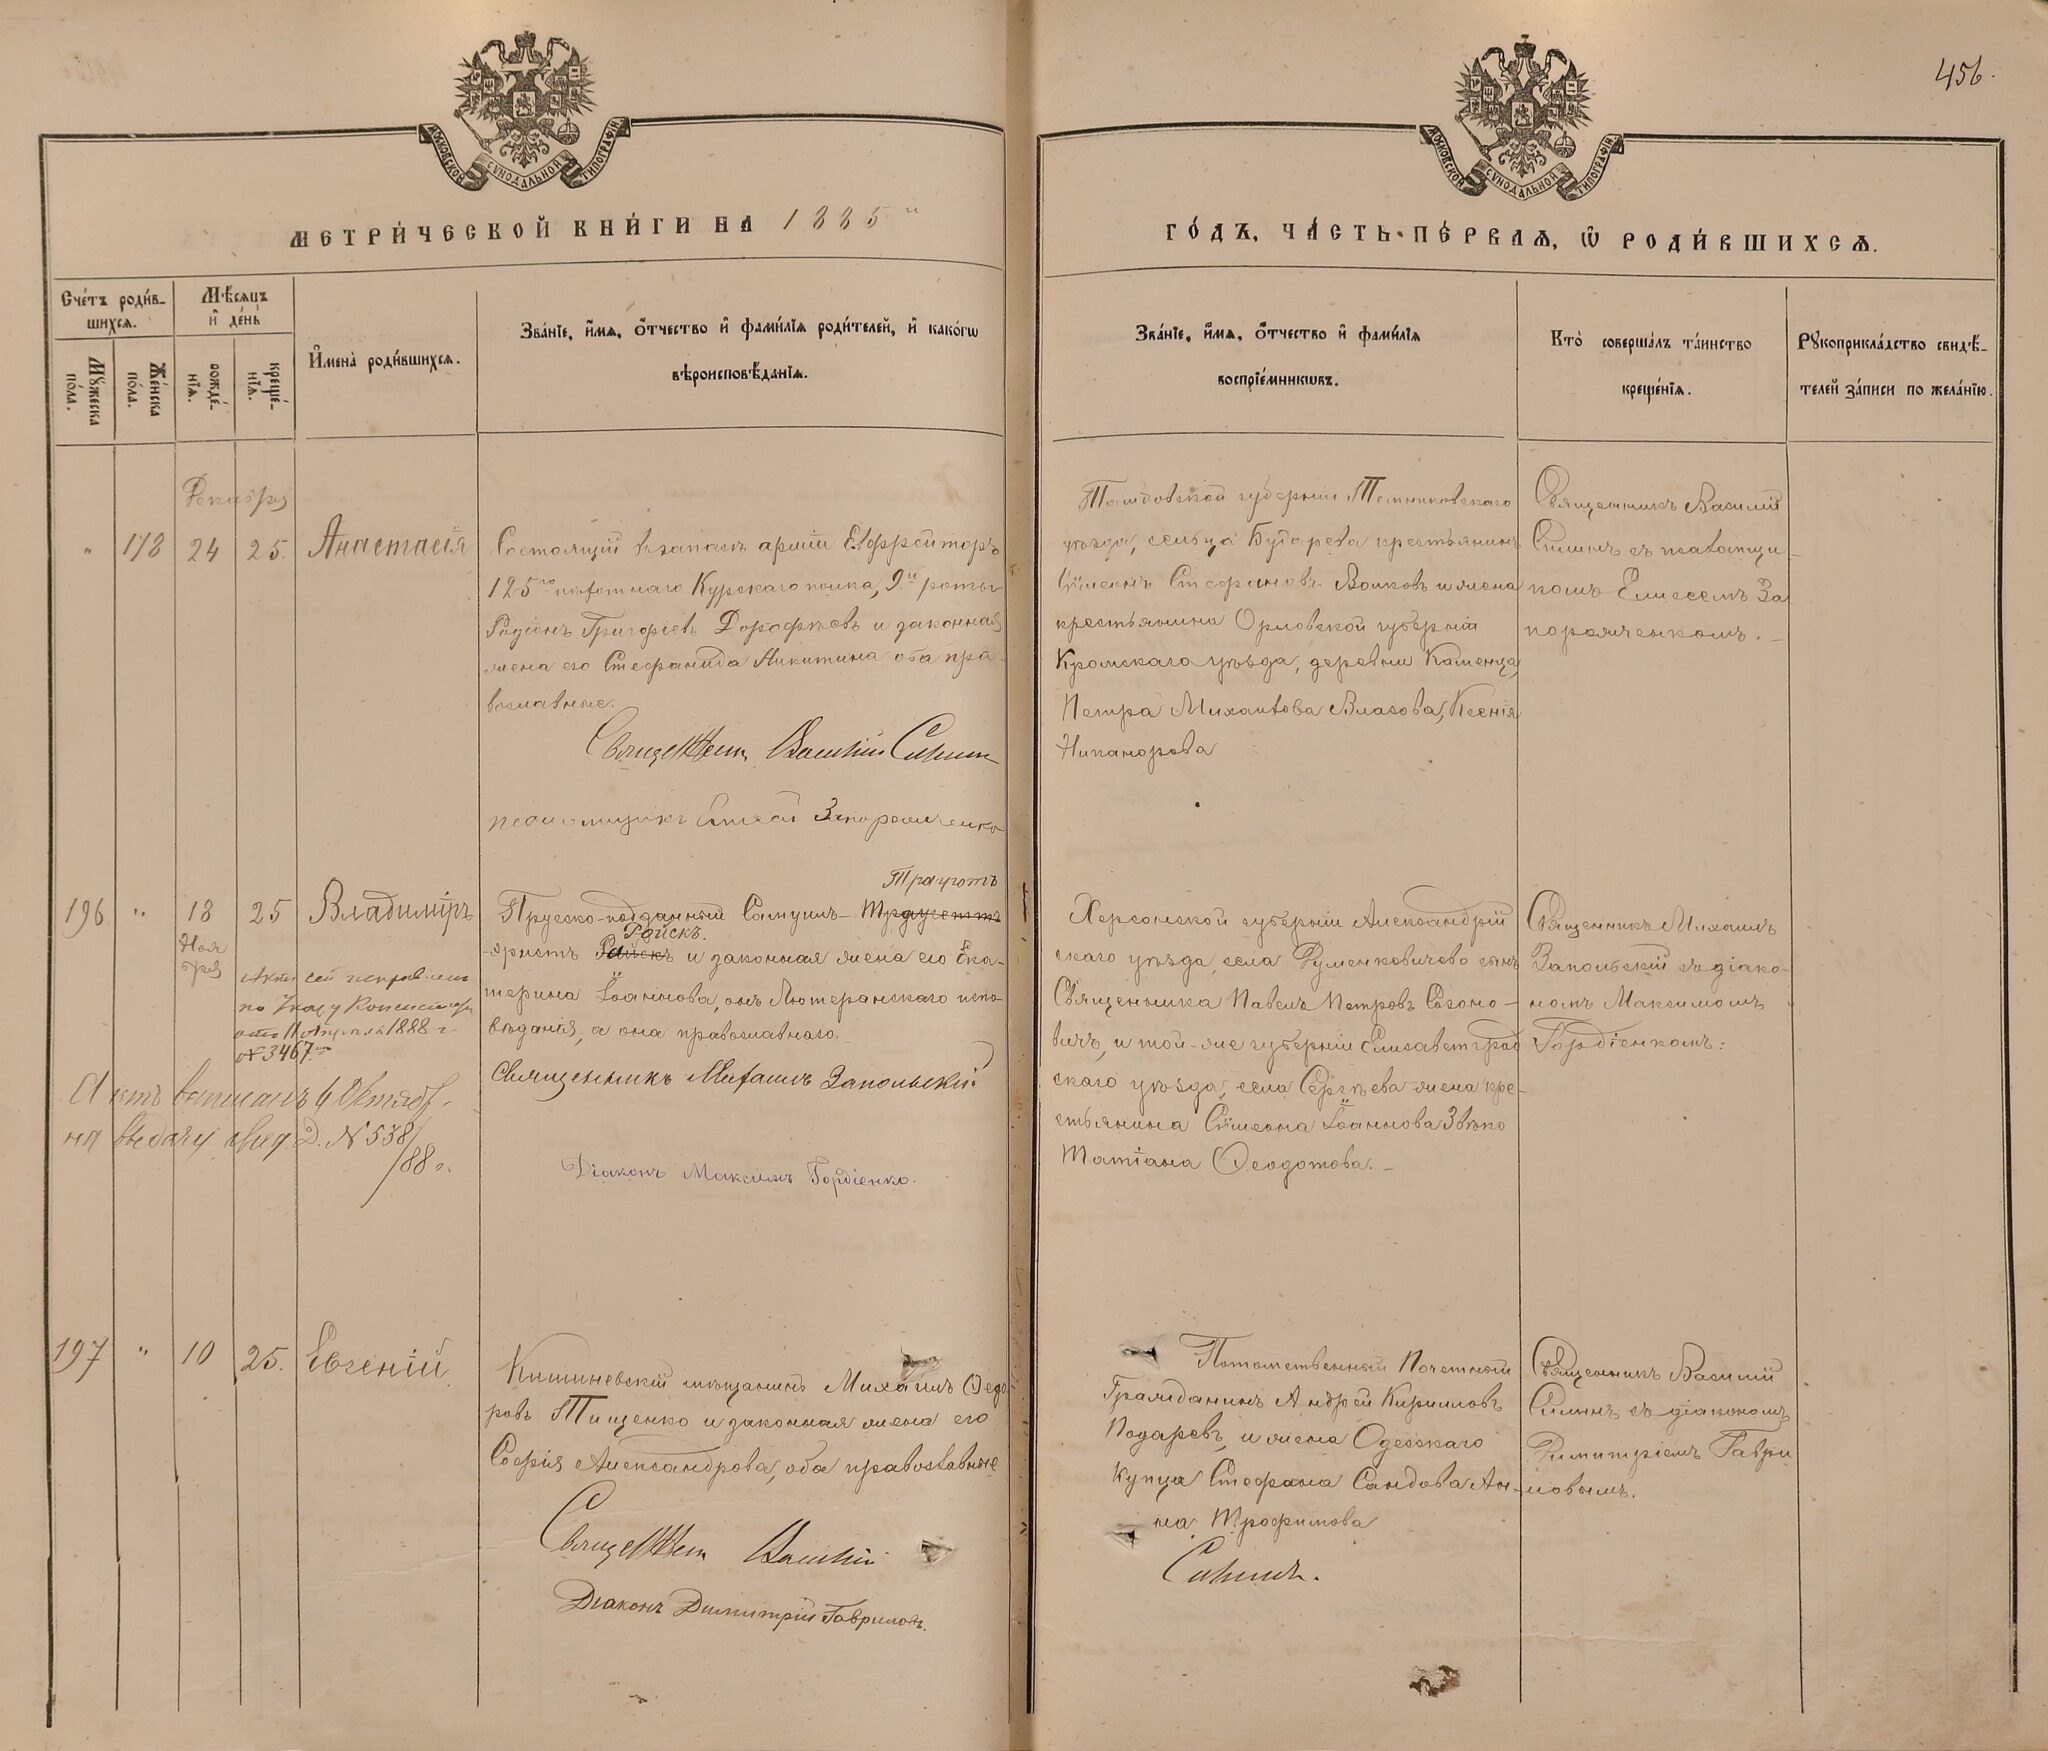 456.
МОСКОВСКОЙ СѴНОДАЛЬНОЙ ТИПОГРАФІИ
МОСКОВСКОЙ СѴНОДАЛЬНОЙ ТИПОГРАФІИ
МЕТРИ́ЧЕСКОЙ КНИ́ГИ НА 1885 й
ГО́ДЪ, ЧА́СТЬ ПЕ́РВАѦ, Ѽ РОДИ́ВШИХСѦ.
Сче́тъ роди́в-
шихсѧ.
Мꙋ́жеска по́ла.
Же́нска по́ла.
Мѣ́сѧцъ и҆ де́нь
рожде́-
нїѧ.
креще́-
нїѧ.
И҆мена̀ роди́вшихсѧ.
Зва́нїе, и҆́мѧ, ѻ҆́тчество и҆ фами́лїѧ роди́телей, и҆ како́гѡ
вѣроисповѣ́данїѧ.
Зва́нїе, и҆́мѧ, ѻ҆́тчество и҆ фами́лїѧ
воспрїе́мникѡвъ.
Кто̀ соверша́лъ та́инство
креще́нїѧ.
Рꙋкоприкла́дство свидѣ́-
телей за́писи по жела́нїю.
Декабрь
" 178 24 25. Анастасія
Состоящій въ запасѣ арміи Ефрейторъ
125го пѣхотнаго Курскаго полка, 9й роты
Родіонъ Григоріевъ Дорофѣевъ и законная
жена его Стефанида Никитина оба пра-
вославные.
Священникъ Василій Силинъ
псаломщикъ Елисей Запорожченко
Тамбовской губерніи Темниковскаго
уѣзда, сельца Бударева крестьянинъ
Сѵмеонъ Стефановъ Волковъ и жена
крестьянина Орловской губерніи
Кромскаго уѣзда, деревни Каменца,
Петра Михайлова Власова, Ксенія
Никанорова
Священникъ Василій
Силинъ съ псаломщи-
комъ Елисеемъ За
порожченкомъ.
196 " 18 25 Владиміръ
Ноя
бря
Актъ сей исправленъ
по Указу Консистор.
отъ 11 Апрѣля 1888 г.
№ 3467.
Актъ выписанъ 4 Октябр.
на выдачу свид. Д. № 538/
/88 г.
Трауготъ
Прусско-подданный Самуилъ-Траугеттъ
Райскъ.
-христъ Райскъ и законная жена его Ека-
терина Іоаннова, онъ Лютеранскаго испо-
вѣданія, а она православнаго.
Священникъ Михаилъ Запольскій
Діаконъ Максимъ Гордіенко.
Херсонской губерніи Александрій
скаго уѣзда, села сынъ
Священника Павелъ Петровъ Созоно-
вичъ, и той-же губерніи Елисаветград
скаго уѣзда, села Сергѣева жена кре-
стьянина Сѵмеона Іоаннова
Татіана Ѳеодотова.
Священникъ Михаилъ
Запольскій съ діако-
номъ Максимомъ
Гордіенкомъ:
197 " 10 25. Евгеній
Кишиневскій мѣщанинъ Михаилъ Ѳедо-
ровъ Тищенко и законная жена его
Софія Александрова, оба православные
Священникъ Василій
Діаконъ Димитрій Гавриловъ.
Потомственный Почетный
Гражданинъ Андрей Кирилловъ
Подаревъ, и жена Одесскаго
Купца Стефана Сандова Ан-
на Трофимова
Силинъ.
Священникъ Василій
Силинъ съ діакономъ
Димитріемъ Гаври
ловымъ.